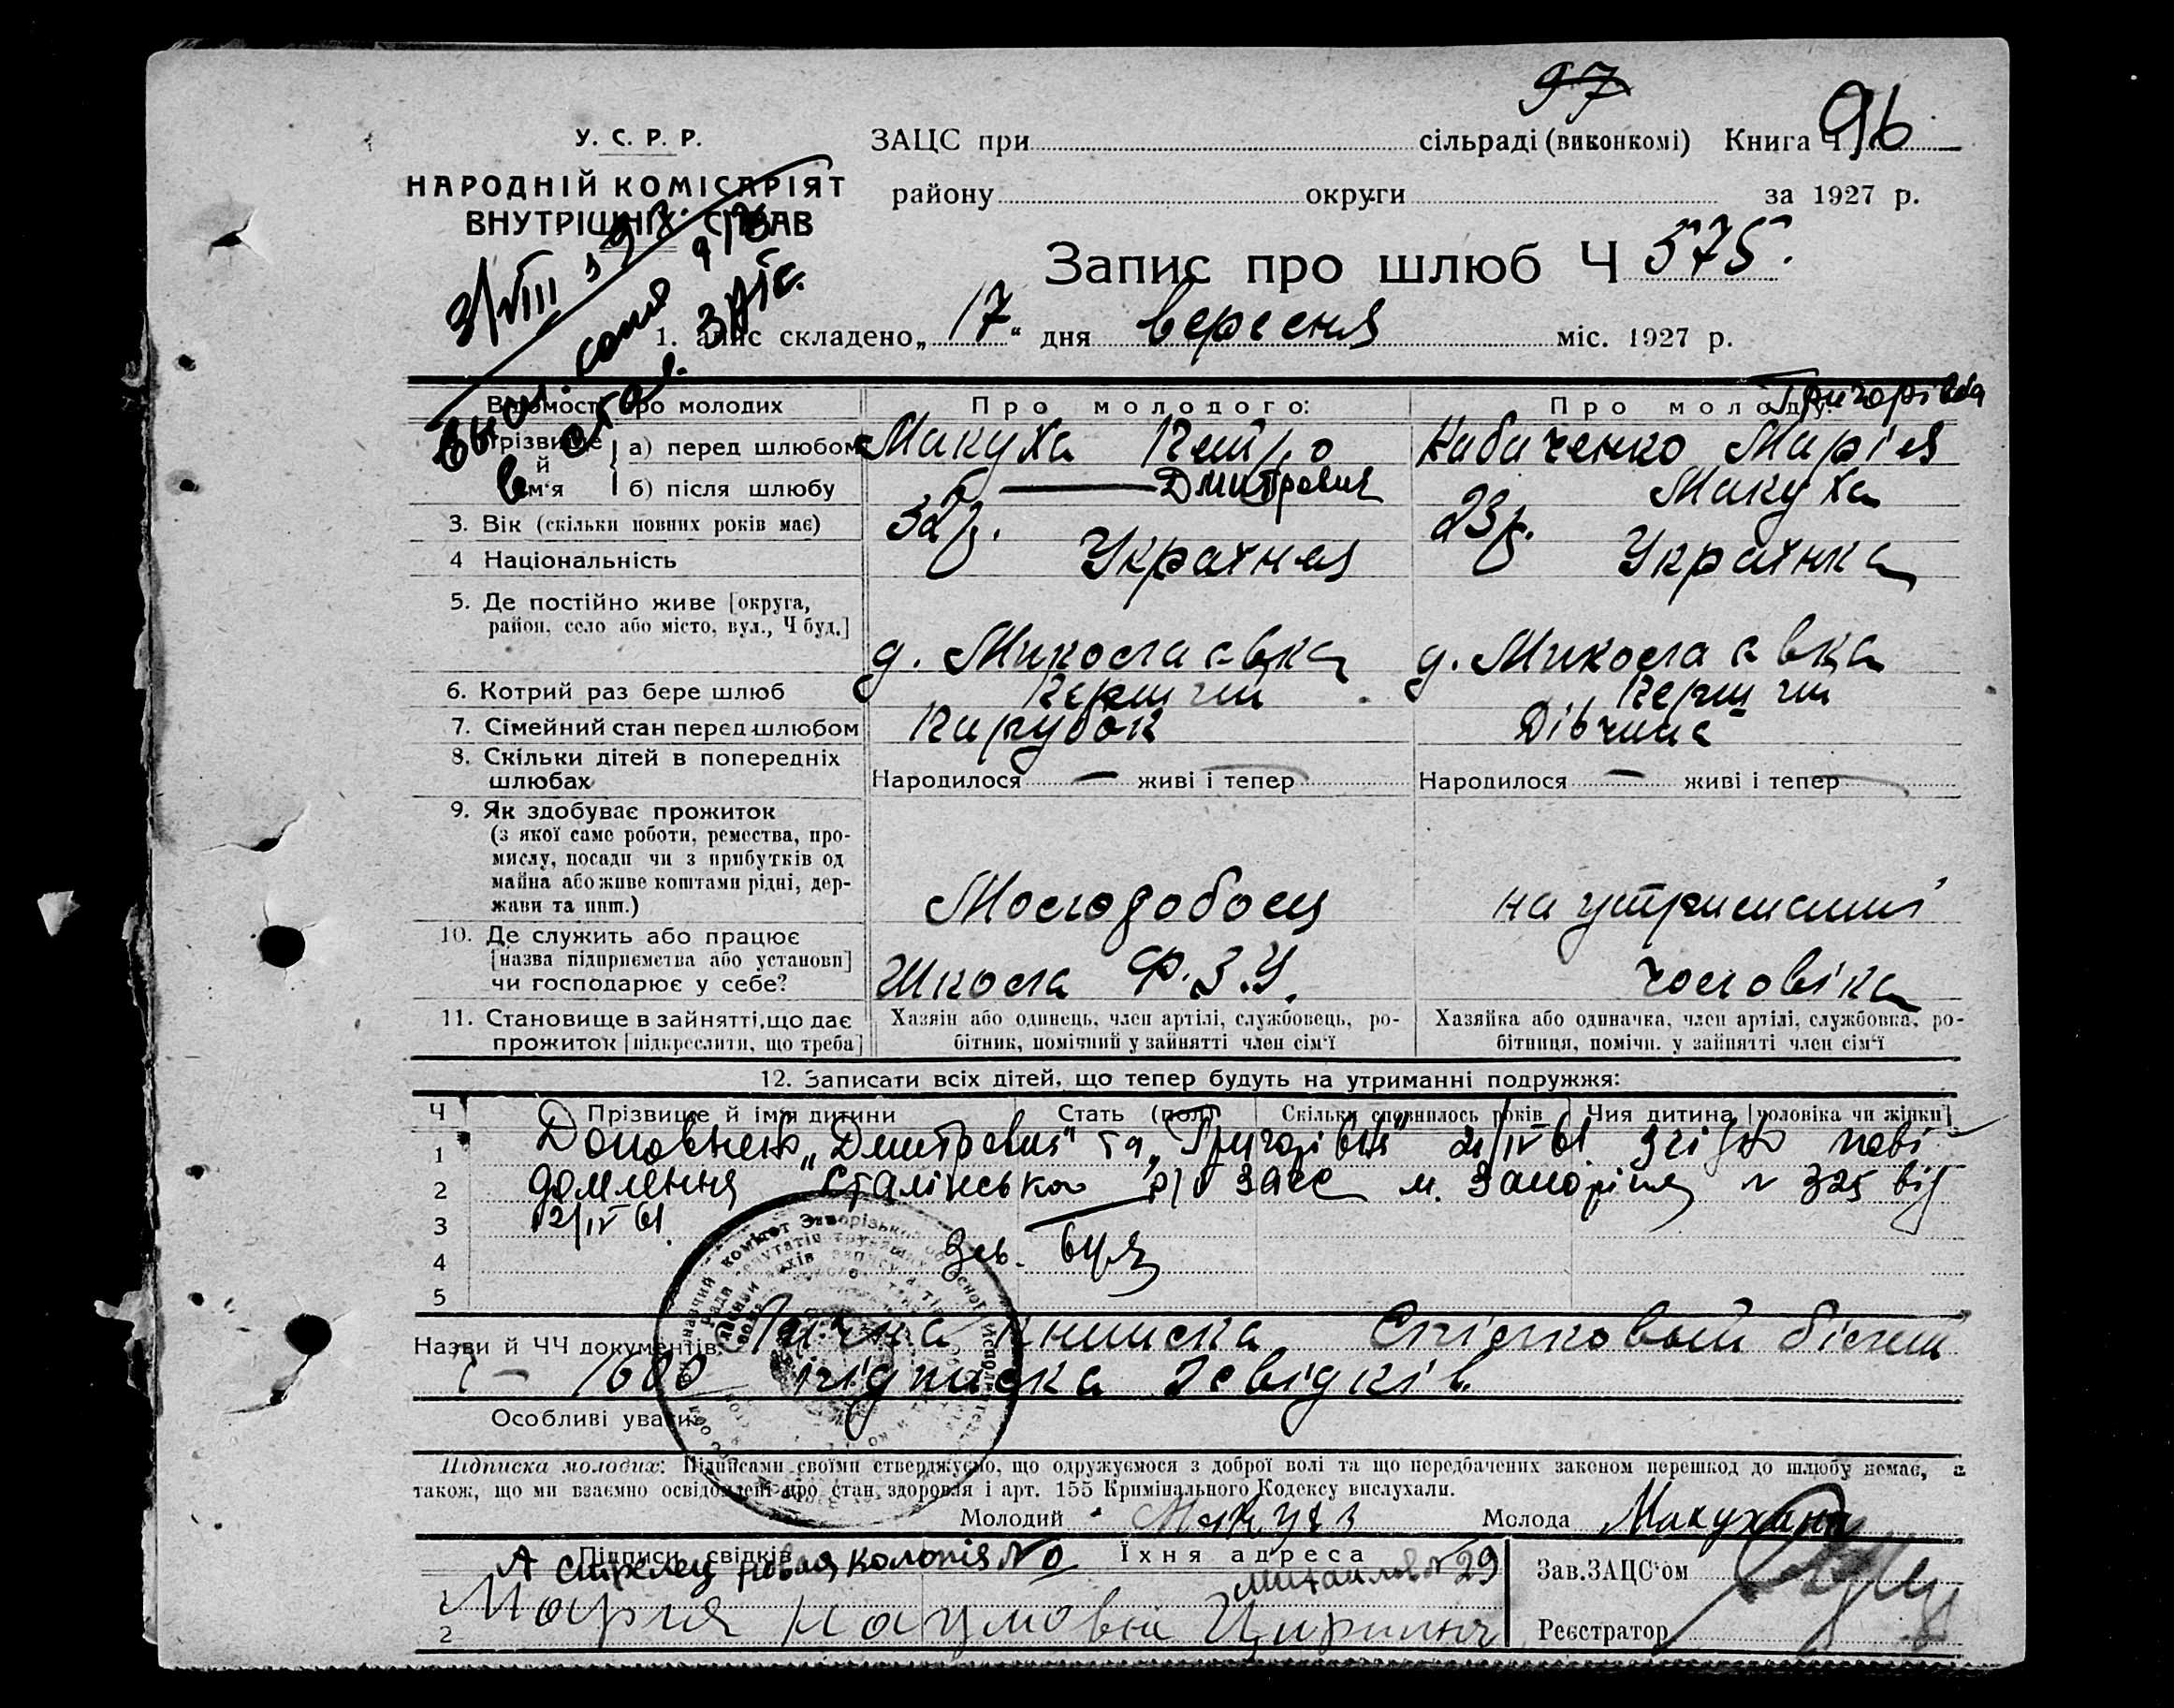 97
У. С. Р. Р.
НАРОДНІЙ КОМІСАРІЯТ
ВНУТРІШНІХ СПРАВ
ЗАЦС при сільраді (виконкомі) Книга Ч 96
району округи за 1927 р.
Запис про шлюб Ч 575.
3/VIII
1. апис складено „17“ дня вересня міс. 1927 р.
Відомості про молодих Про молодого: Про молоду:
Григорівна
а) перед шлюбом Макуха Петро Кабаченко Марія
й
м‘я б) після шлюбу — Дмитрович Макуха
3. Вік (скільки повних років має) 32 р. 23 р.
4 Національність Українец Українка
5. Де постійно живе [округа,
район, село або місто, вул., Ч буд.]
д. Миколаевка д. Миколаевка
6. Котрий раз бере шлюб Перший Перший
7. Сімейний стан перед шлюбом Парубок Дівчина
8. Скільки дітей в попередніх
шлюбах Народилося — живі і тепер Народилося — живі і тепер
9. Як здобуває прожиток
(з якої саме роботи, ремества, про-
мислу, посади чи з прибутків од
майна або живе коштами рідні, дер-
жави та инш.)
Молодобоец на утриманні
10. Де служить або працює
[назва підприємства або установи]
чи господарює у себе?
Школа Ф.З.У. чоловіка
11. Становище в зайнятті, що дає
прожиток [підкреслити, що треба]
Хазяїн або одинець, член артілі, службовець, ро-
бітник, помічний у зайнятті член сім‘ї
Хазяйка або одиначка, член артілі, службовка, ро-
бітниця, помічн. у зайнятті член сім‘ї
12. Записати всіх дітей, що тепер будуть на утриманні подружжя:
Ч Прізвище й ім‘я дитини Стать (пол) Скільки сповнилось років Чия дитина [чоловіка чи жінки]
1 Доповнено „Дмитрович“ та „Григорівна“ 21/IV 61 згідно пові
2 домлення Сталінського р/в загс м. Запоріжжя № 325 від
3 12/IV 61.
4 Зав.
5
Назви й ЧЧ документів: книжка Спілковый білет
1600 підписка свідків
Особливі уваги
Підписка молодих: Підписами своїми стверджуємо, що одружуємося з доброї волі та що передбачених законом перешкод до шлюбу немає, а
також, що ми взаємно освідомлені про стан здоровля і арт. 155 Кримінального Кодексу вислухали.
Молодий Макуха Молода Макухина
Підписи свідків Їхня адреса
А Стрелец новая колонія № 29
1
2 Мария Наумовна
Зав. ЗАЦС‘ом
Реєстратор